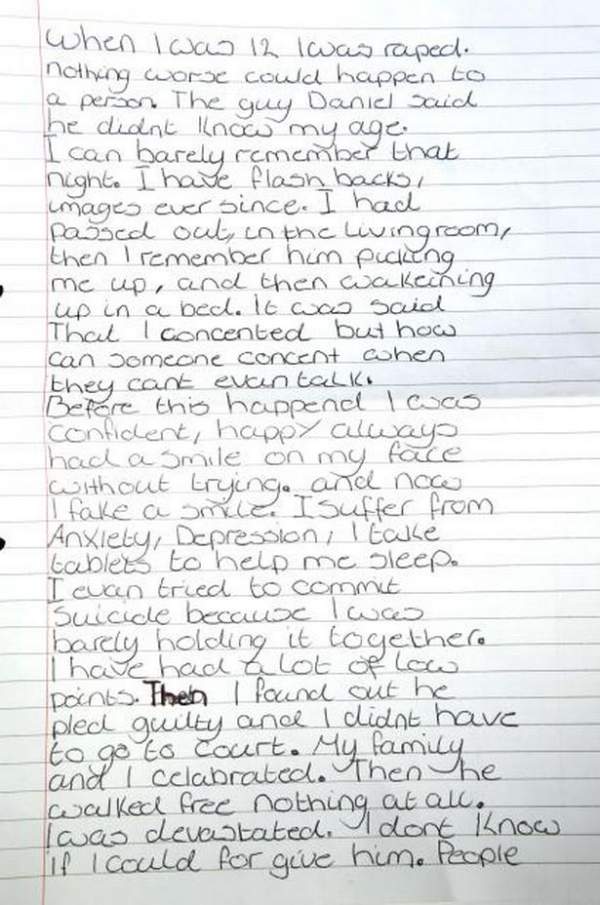 When I was 12 I was raped.
nothing worse could happen to
a person. The guy Daniel said
he didnt know my age.
I can barely remember that
night. I have flash backs,
images ever since. I had
passed out, in the livingroom,
then I remember him picking
me up, and then wakeining
up in a bed. It was said
That I concented but how
can someone concent when
they cant evan talk.
Before this happend I was
confident, happy always
had a smile on my face
without trying. and now
I fake a smile. I suffer from
Anxiety, Depression, I take
tablets to help me sleep.
I evan tried to commit
Suicide because I was
barely holding it together.
I have had a lot of low
points. Then I found out he
pled guilty and I didnt have
to go to court. My family
and I celabrated. Then he
walked free nothing at all.
I was devastated. I dont know
if I could for give him. People